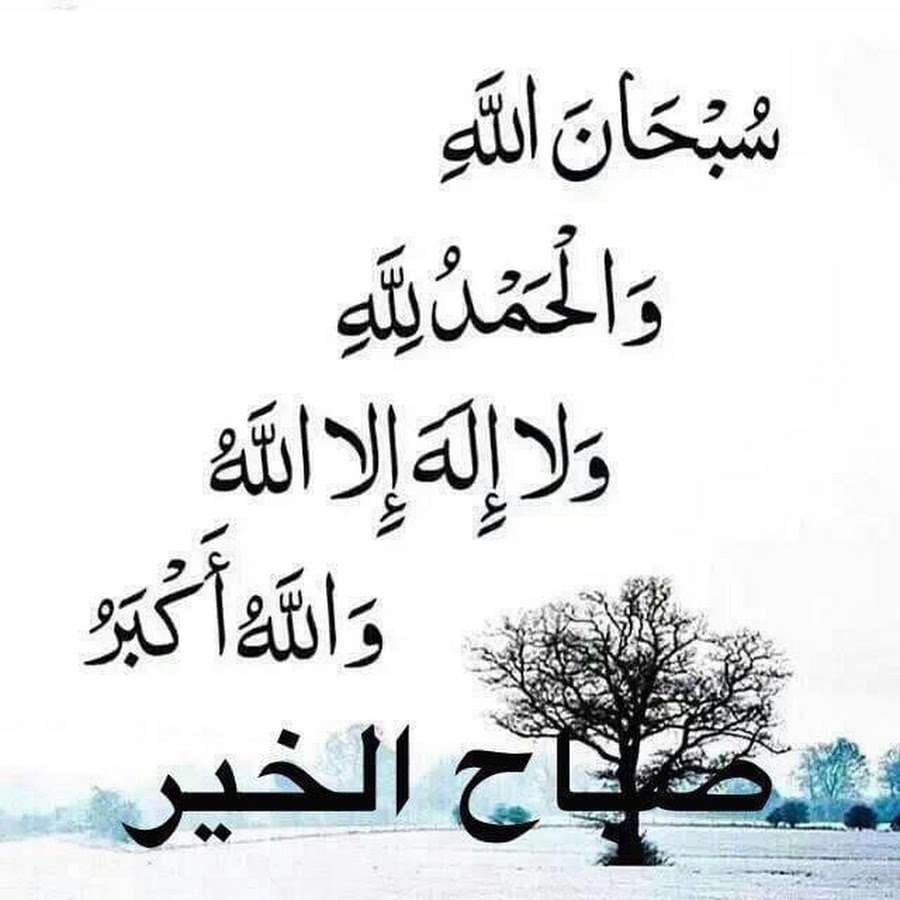 سُبْحَانَ اللَّهِ
وَالْحَمْدُ لِلَّهِ
وَلا إِلَهَ إِلا اللَّهُ
وَاللَّهُ أَكْبَرُ
صباح الخير